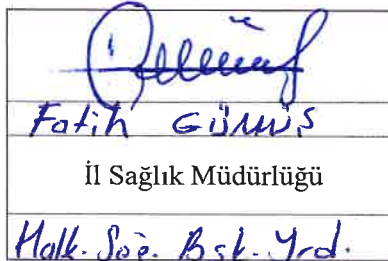 Fatih GÜMÜŞ
İl Sağlık Müdürlüğü
Halk. Sağ. Bşk. Yrd.